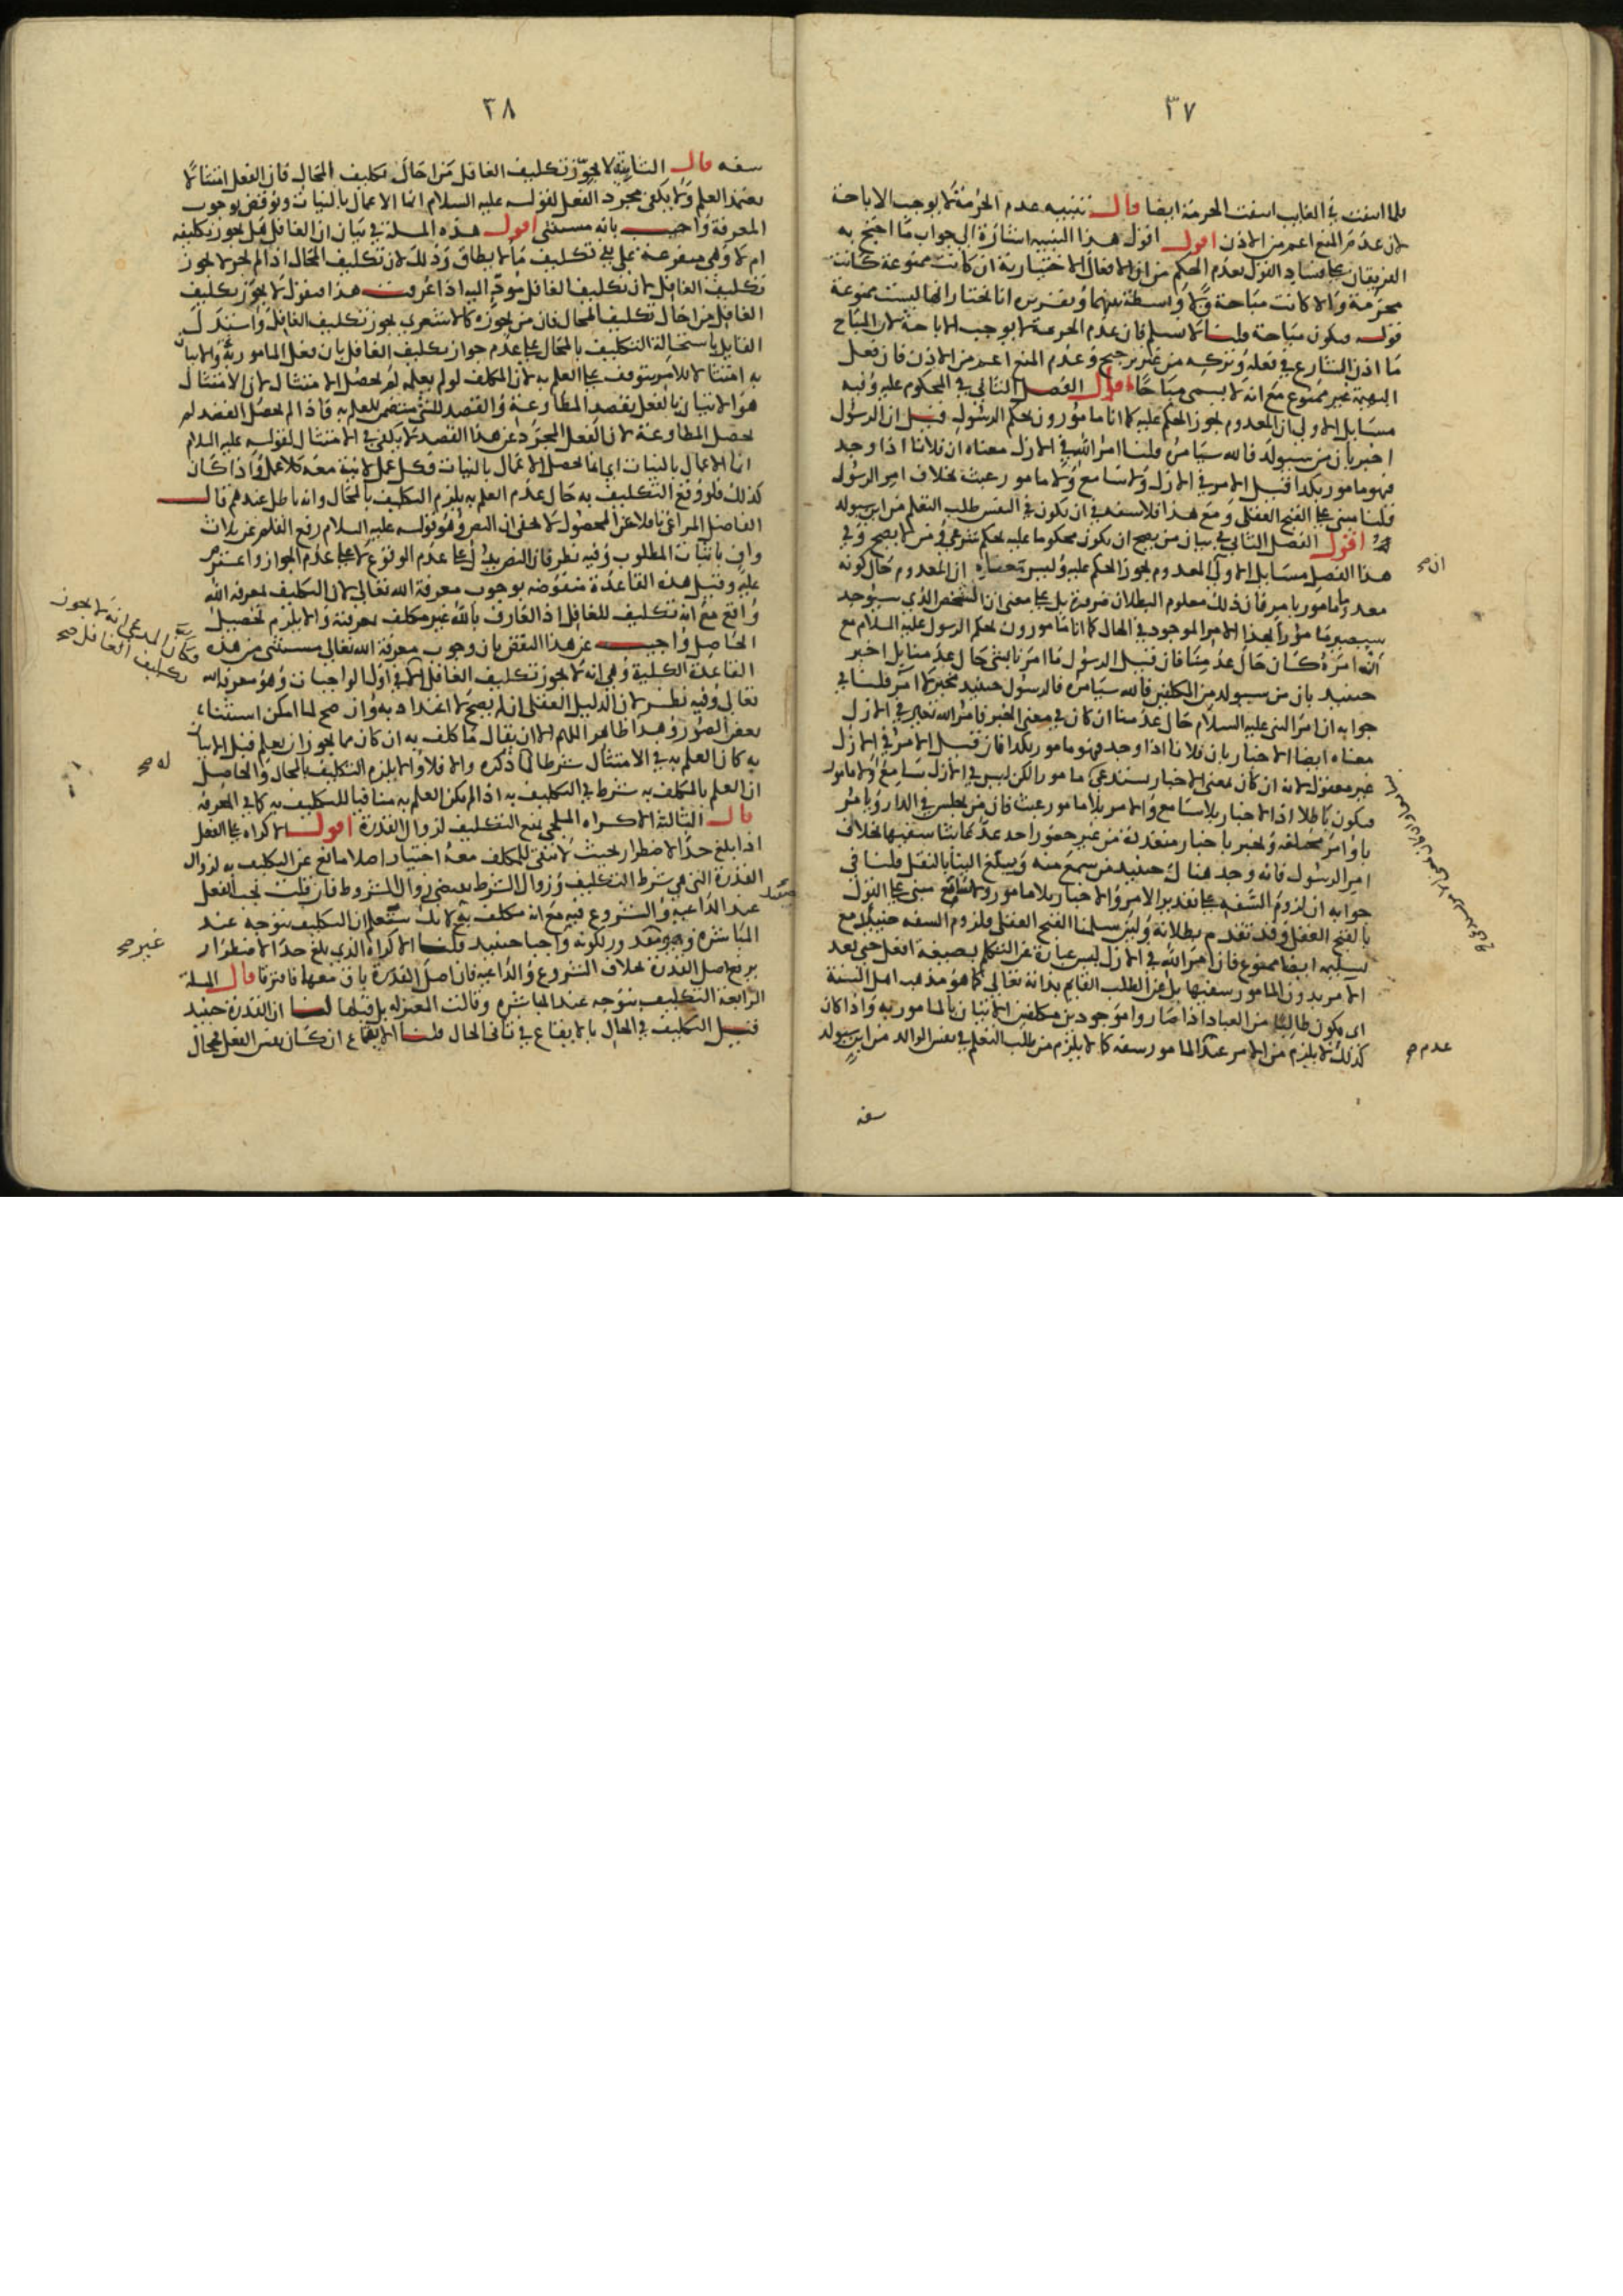 ٣٧
فلما انتفت في الغايب انتفت الحرمة ايضا قال تنبيه عدم الحرمة لا يوجب الاباحة
لان عدم المنع اعم من الاذن اقول اقول هذا التنبيه اشارة الى جواب ما احتج به
الفريقان على فساد القول بعدم الحكم من ان الافعال الاختيارية ان كانت ممنوعة كانت
محرمة والا كانت مباحة ولا واسطة بينهما انا نختار انها ليست ممنوعة
قوله فيكون مباحة قلنا لا نسلم فان عدم الحرمة لا يوجب الاباحة لان المباح
ما اذن الشارع في فعله وتركه من غير ترجيح وعدم المنع اعم من الاذن فان فعل
البهيمة غير ممنوع مع انه لا يسمى مباحا قال الفصل الثاني في المحكوم عليه وفيه
مسايل الاولى ان المعدوم يجوز الحكم عليه كما انا مامورون بحكم الرسول قيل ان الرسول
اخبر بان من سيولد فالله سيامره قلنا امر الله في الازل معناه ان فلانا اذا وجد
فهو مامور بكذا قيل الامر في الازل ولا سامع ولا مامور عبث بخلاف امر الرسول
قلنا مبني على القبح العقلي ومع هذا فلا سفه في ان يكون في النفس طلب التعلم من ابن سيولد
اقول الفصل الثاني في بيان من يصح ان يكون محكوما عليه بحكم شرعي ومن لا يصح وفي
هذا الفصل مسايل الاولى المعدوم يجوز الحكم عليه وليس معناه ان المعدوم حال كونه
معدوما مامور بامر فان ذلك معلوم البطلان ضرورة بل على معنى ان الشخص الذي سيوجد
سيصير مامورا بهذا الامر الموجود في الحال كما انا مامورون بحكم الرسول عليه السلام مع
انه امره كان حال عدمنا فان قيل الرسول ما امرنا بشيء حال عدمنا بل اخبر
حينيذ بان من سيولد من المكلفين فالله سيامره فالرسول حينيذ مخبر لا امر قلنا في
جوابه ان امر النبي عليه السلام حال عدمنا ان كان في معنى الخبر فامر الله تعالى في الازل
معناه ايضا الاخبار بان فلانا اذا وجد فهو مامور بكذا فان قيل الامر في الازل
غير معقول لانه ان كان بمعنى الاخبار يستدعي مامورا لكن ليس في الازل سامع ولا مامور
فيكون باطلا اذ الاخبار بلا سامع والامر بلا مامور عبث فان من يجلس في الدار ويامر
باوامر مختلفة ويخبر باخبار متعددة من غير حضور احد عد عابثا سفيها بخلاف
امر الرسول فانه وجد هناك حينيذ من سمع منه ويبلغ الينا بالنقل قلنا في
جوابه ان لزوم السفه على تقدير الامر والاخبار بلا مامور ولا سامع مبني على القول
بالقبح العقلي وقد تقدم بطلانه ولين سلمنا القبح العقلي فلزوم السفه حينيذ مع
تسليمه ايضا ممنوع فان امر الله في الازل ليس عبارة عن التكلم بصيغة افعل حتى يعد
الامر بدون المامور سفيها بل عن الطلب القايم بذاته تعالى كما هو مذهب اهل السنة
اي يكون طالبا من العباد اذا صاروا موجودين مكلفين الاتيان بالمامور به واذا كان
كذلك لا يلزم من الامر عند المامور سفه كما لا يلزم من طلب التعلم في نفس الوالد من ابن سيولد
ان صح
عدم صح
سفه
٣٨
سفه قال الثانية لا يجوز تكليف الغافل من احال تكليف المحال فان الفعل امتثالا
يعتمد العلم ولا يكفي مجرد الفعل لقوله عليه السلام انما الاعمال بالنيات ونوقض بوجوب
المعرفة واجيب بانه مستثنى اقول هذه المسلة في بيان ان الغافل هل يجوز تكليفه
ام لا وهي متفرعة على تكليف ما لا يطاق وذلك لان تكليف المحال اذا لم يجز لا يجوز
تكليف الغافل لان تكليف الغافل مودّ اليه اذا عرفت هذا فيقول لا يجوز تكليف
الغافل من احال تكليف المحال فان من يجوزه كالاشعري يجوز تكليف الغافل واستدل
القايل باستحالة التكليف بالمحال على عدم جواز تكليف الغافل بان فعل المامور به والاتيان
به امتثالا للامر يتوقف على العلم به لان المكلف لو لم يعلمه لم يحصل الامتثال لان الامتثال
هو الاتيان بالفعل بقصد المطاوعة والقصد للشيء متضمن للعلم به فاذا لم يحصل القصد لم
تحصل المطاوعة لان الفعل المجرد عن هذا القصد لا يكفي في الامتثال لقوله عليه السلام
انما الاعمال بالنيات اي انما يحصل الاعمال بالنيات فكل عمل لا نية معه فلا عمل واذا كان
كذلك فلو وقع التكليف به حال عدم العلم به يلزم التكليف بالمحال وانه باطل عندهم قال
الفاضل المراغي ناقلا عن المحصول لا يخفى ان النص وهو قوله عليه السلام رفع القلم عن ثلاث
واف باثبات المطلوب وفيه نظر فان النص يدل على عدم الوقوع لا على عدم الجواز واعترض
عليه وقيل هذه القاعدة منقوضة بوجوب معرفة الله تعالى لان التكليف بمعرفة الله
واقع مع انه تكليف للغافل اذ العارف بالله غير مكلف بمعرفته والا يلزم تحصيل
الحاصل واجيب عن هذا النقض بان وجوب معرفة الله تعالى مستثنى من هذه
القاعدة الكلية وهي انه لا يجوز تكليف الغافل الا في اول الواجبات وهو معرفة الله
تعالى وفيه نظر لان الدليل العقلي ان لم يصح لا اعتداد به وان صح لما امكن استثناء
بعض الصور وهذا ظاهر اللهم الا ان يقال ما كلف به ان كان مما يجوز ان يعلم قبل الاتيان
به كان العلم به في الامتثال شرطا كما ذكره والا فلا والا يلزم التكليف بالمحال والحاصل
ان العلم بالمكلف به شرط في التكليف به اذا لم يكن العلم به منافيا للتكليف به كما في المعرفة
قال الثالثة الاكراه الملجي يمنع التكليف لزوال القدرة اقول الاكراه على الفعل
اذا بلغ حد الاضطرار بحيث لا يبقى للمكلف معه اختيار اصلا مانع عن التكليف به لزوال
القدرة التي هي شرط التكليف وزوال الشرط يقتضي زوال المشروط فان قلت يجب الفعل
عند الداعية والشروع فيه مع انه مكلف به لانك ستعلم ان التكليف يتوجه عند
المباشرة وبكونه واجبا حينيذ قلنا الاكراه الذي بلغ حد الاضطرار
يرفع اصل القدرة بخلاف الشروع والداعية فان اصل القدرة باق معها فافترقا قال المسلة
الرابعة التكليف يتوجه عند المباشرة وقالت المعتزلة بل قبلها لنا ان القدرة حينيذ
قيل التكليف في الحال بالايقاع في ثاني الحال قلنا الايقاع ان كان نفس الفعل فمحال
وكان المدعي انه لا يجوز
تكليف الغافل صح
له صح
غير صح